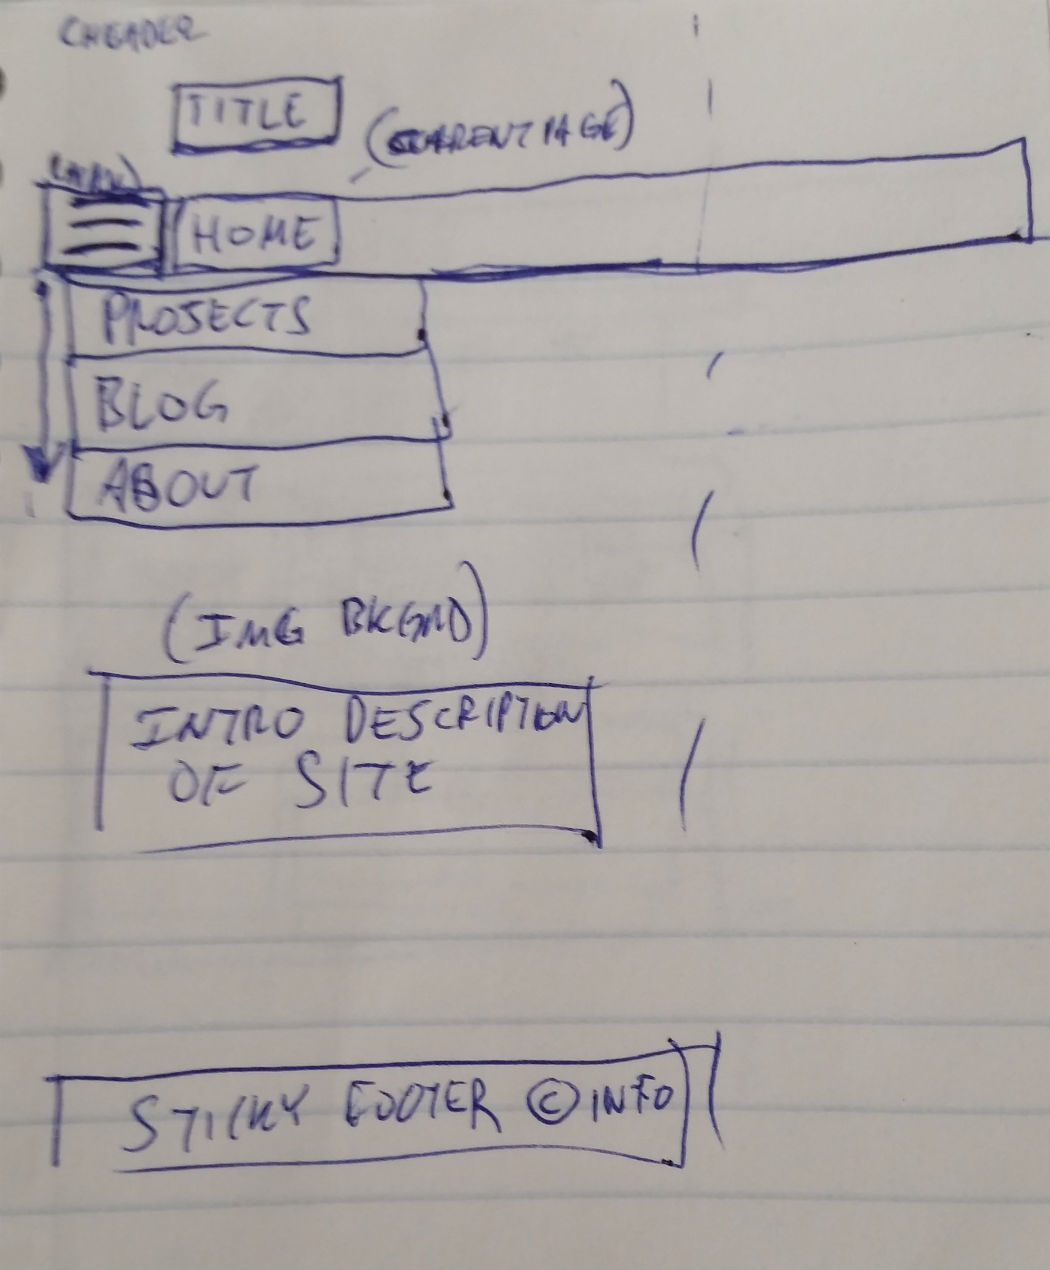 (HEADER
TITLE
(CURRENT PAGE)
HOME
PROJECTS
BLOG
ABOUT
(IMG BKGND)
INTRO DESCRIPTION
OF SITE
STICKY FOOTER © INFO